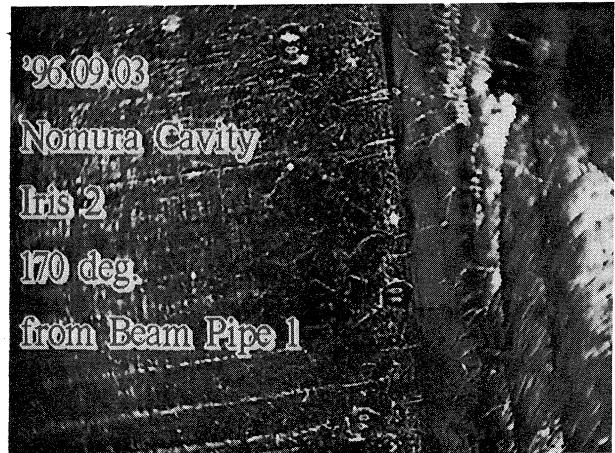 '96.09.03
Nomura Cavity
Iris 2
170 deg.
from Beam Pipe 1